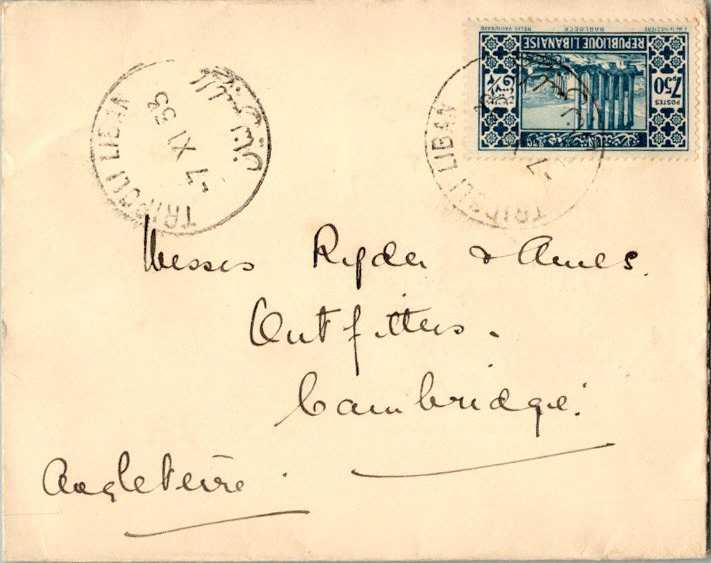 TRIPOLI LIBAN
-7 XI 33
طرابلس
REPUBLIQUE LIBANAISE
BAALBECK
HELIO VAUGIRARD
POSTES
7,50
TRIPOLI LIBAN
-7
Messrs Ryder & Ames.
Outfitters.
Cambridge.
Angleterre.